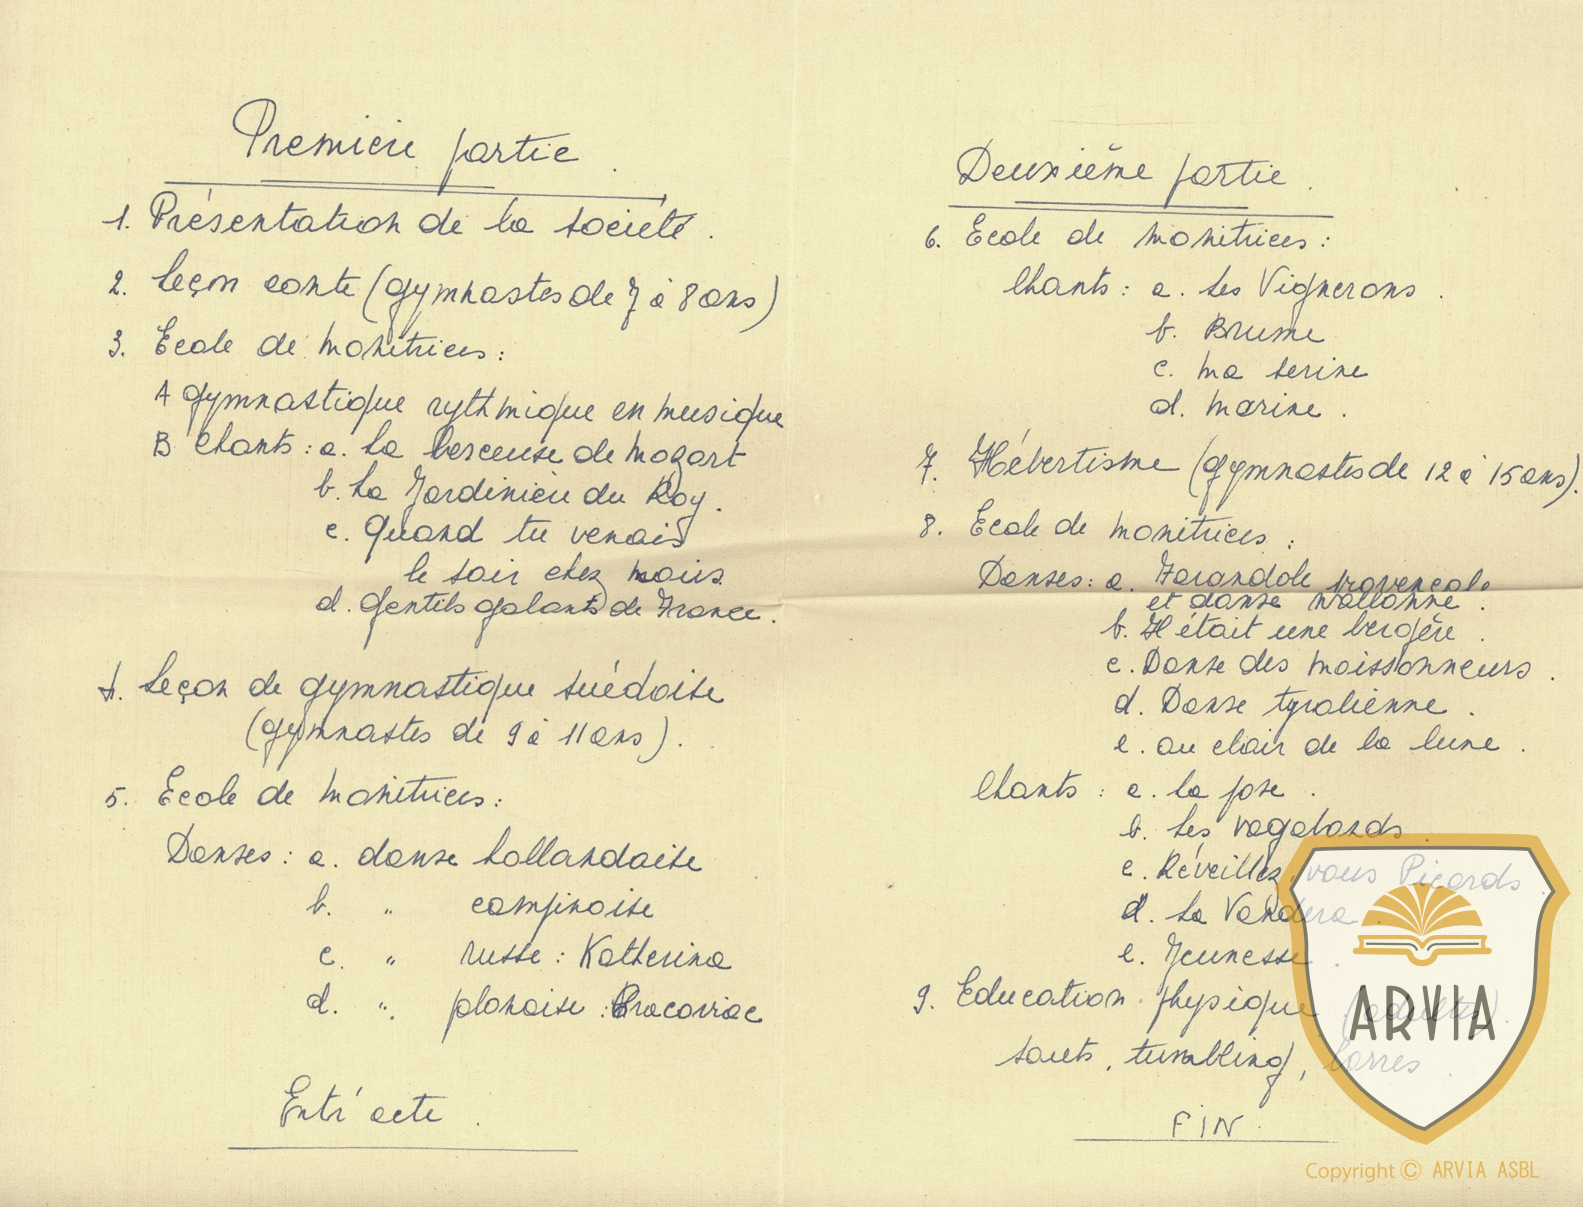 Première partie
1. Présentation de la société.
2. Leçon conte (gymnastes de 7 à 8 ans)
3. Ecole de monitrices :
A gymnastique rythmique en musique
B Chants : a. La berceuse de Mozart
b. La Jardinière du Roy.
c. Quand tu venais
le soir chez nous
d. Gentils galants de France.
4. Leçon de gymnastique suédoise
(gymnastes de 9 à 11 ans).
5. Ecole de monitrices :
Danses : a. danse hollandaise
b. " campinoise
c. " russe : Katherina
d. " polonaise : Cracoviac
Entr'acte.
Deuxième partie.
6. Ecole de monitrices :
Chants : a. Les Vignerons.
b. Brume
c. ma serine
d. marine.
7. Hébertisme (gymnastes de 12 à 15 ans).
8. Ecole de monitrices :
Danses : a. Farandole provençale
et danse wallonne.
b. Il était une bergère.
c. Danse des moissonneurs.
d. Danse tyrolienne.
e. au clair de la lune.
Chants : a. la joie.
b. Les vagabonds
c. Réveillez vous Picards
d. La Vandera.
e. Jeunesse.
9. Education physique (adultes).
sauts, tumbling, barres.
FIN.
ARVIA
Copyright © ARVIA ASBL